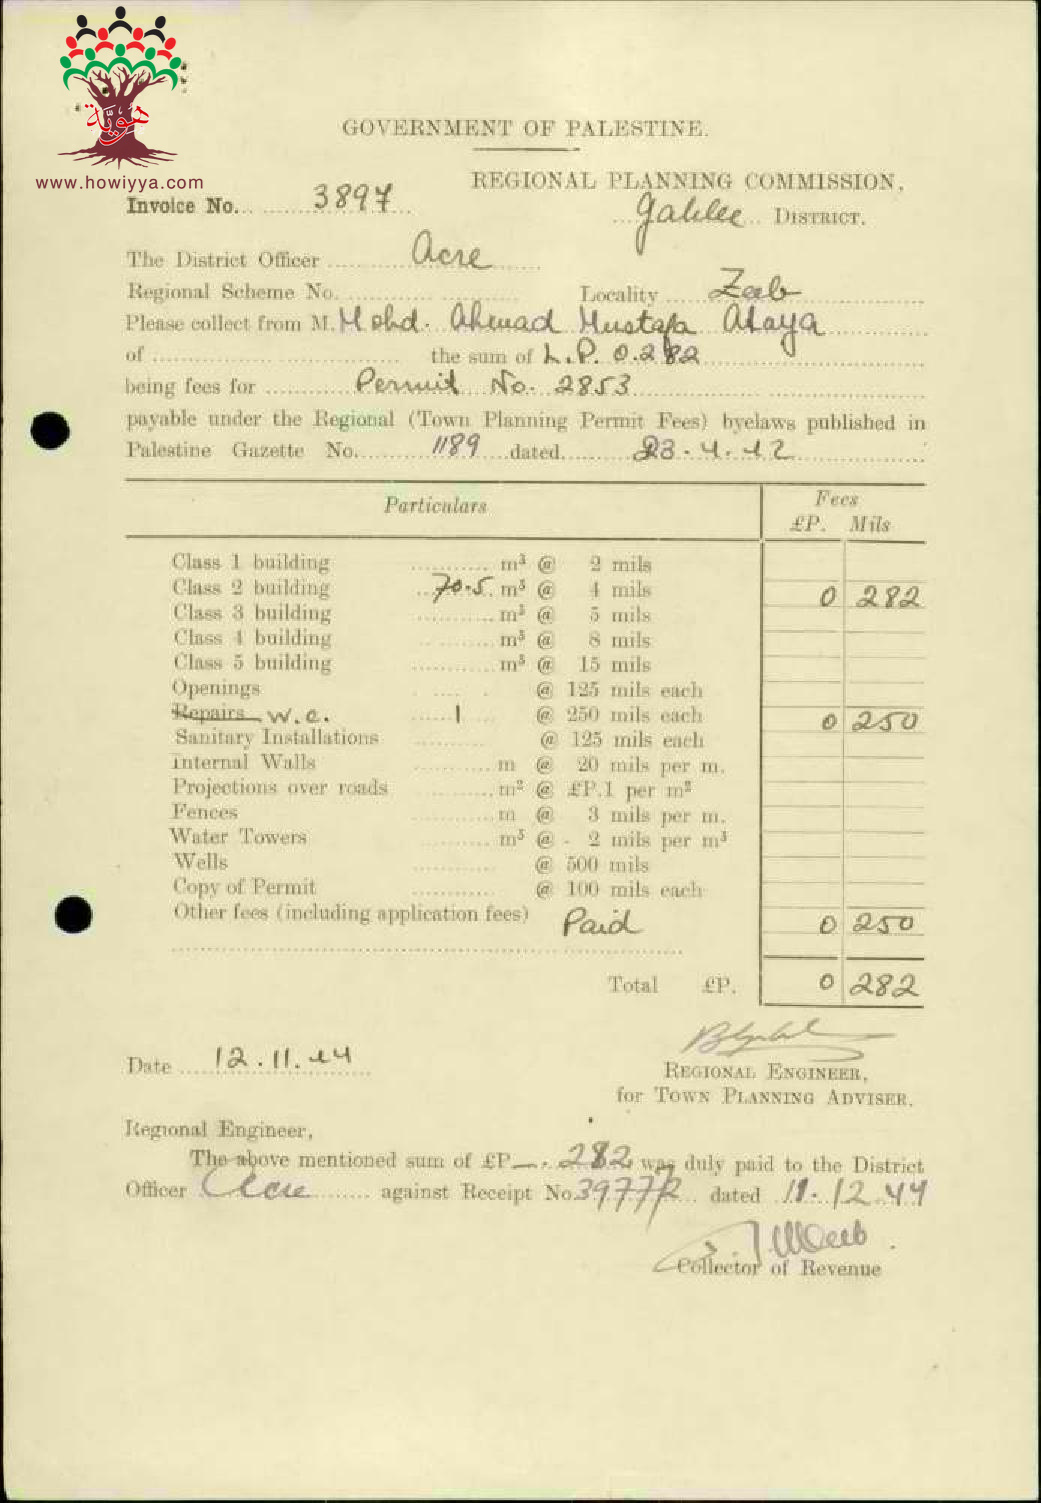 هوية
www.howiyya.com
GOVERNMENT OF PALESTINE.
REGIONAL PLANNING COMMISSION.
Invoice No. 3897
Galilee DISTRICT.
The District Officer Acre
Regional Scheme No. Locality Zeeb
Please collect from M. Mohd. Ahmad Mustafa Ataya
of the sum of L.P. 0.282
being fees for Permit No. 2853
payable under the Regional (Town Planning Permit Fees) byelaws published in
Palestine Gazette No. 1189 dated 23.4.42
Particulars Fees
£P. Mils
Class 1 building m³ @ 2 mils
Class 2 building 70.5 m³ @ 4 mils 0 282
Class 3 building m³ @ 5 mils
Class 4 building m³ @ 8 mils
Class 5 building m³ @ 15 mils
Openings @ 125 mils each
Repairs W.C. 1 @ 250 mils each 0 250
Sanitary Installations @ 125 mils each
Internal Walls m @ 20 mils per m.
Projections over roads m² @ £P.1 per m²
Fences m @ 3 mils per m.
Water Towers m³ @ - 2 mils per m³
Wells @ 500 mils
Copy of Permit @ 100 mils each
Other fees (including application fees) Paid 0 250
Total £P. 0 282
Date 12.11.44
REGIONAL ENGINEER,
for TOWN PLANNING ADVISER.
Regional Engineer,
The above mentioned sum of £P —.282 was duly paid to the District
Officer Acre against Receipt No. dated 11.12.44
Collector of Revenue